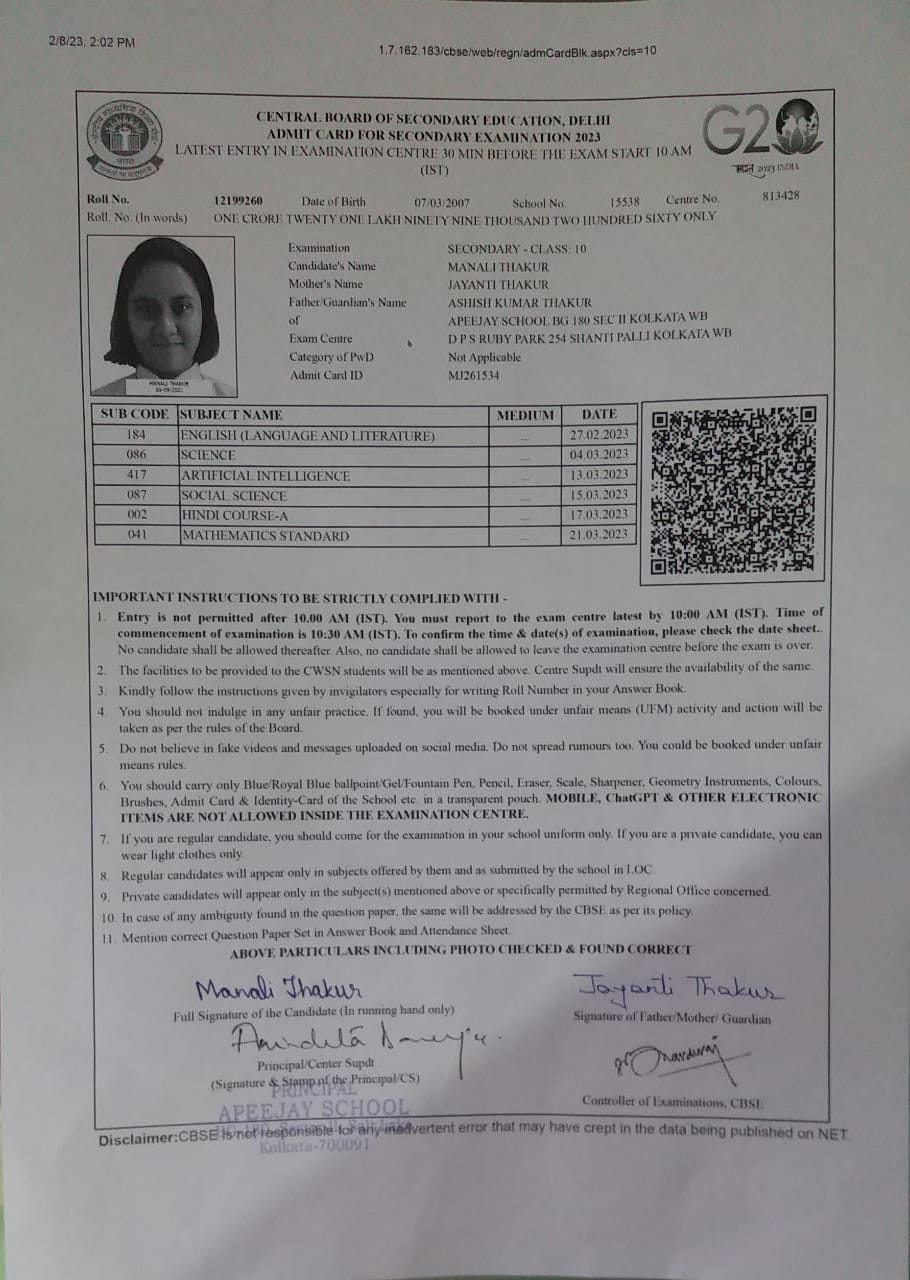 2/8/23, 2:02 PM
1.7.162.183/cbse/web/regn/admCardBlk.aspx?cls=10
CENTRAL BOARD OF SECONDARY EDUCATION, DELHI
ADMIT CARD FOR SECONDARY EXAMINATION 2023
LATEST ENTRY IN EXAMINATION CENTRE 30 MIN BEFORE THE EXAM START 10 AM
(IST)
भारत
G20
2023 INDIA
Roll No. 12199260 Date of Birth 07/03/2007 School No. 15538 Centre No. 813428
Roll. No. (In words) ONE CRORE TWENTY ONE LAKH NINETY NINE THOUSAND TWO HUNDRED SIXTY ONLY
Examination SECONDARY - CLASS: 10
Candidate's Name MANALI THAKUR
Mother's Name JAYANTI THAKUR
Father/Guardian's Name ASHISH KUMAR THAKUR
of APEEJAY SCHOOL BG 180 SEC II KOLKATA WB
Exam Centre D P S RUBY PARK 254 SHANTI PALLI KOLKATA WB
Category of PwD Not Applicable
Admit Card ID MJ261534
MANALI THAKUR
SUB CODE SUBJECT NAME MEDIUM DATE
184 ENGLISH (LANGUAGE AND LITERATURE) ... 27.02.2023
086 SCIENCE ... 04.03.2023
417 ARTIFICIAL INTELLIGENCE ... 13.03.2023
087 SOCIAL SCIENCE ... 15.03.2023
002 HINDI COURSE-A ... 17.03.2023
041 MATHEMATICS STANDARD ... 21.03.2023
IMPORTANT INSTRUCTIONS TO BE STRICTLY COMPLIED WITH -
1. Entry is not permitted after 10.00 AM (IST). You must report to the exam centre latest by 10:00 AM (IST). Time of
commencement of examination is 10:30 AM (IST). To confirm the time & date(s) of examination, please check the date sheet..
No candidate shall be allowed thereafter. Also, no candidate shall be allowed to leave the examination centre before the exam is over.
2. The facilities to be provided to the CWSN students will be as mentioned above. Centre Supdt will ensure the availability of the same.
3. Kindly follow the instructions given by invigilators especially for writing Roll Number in your Answer Book.
4. You should not indulge in any unfair practice. If found, you will be booked under unfair means (UFM) activity and action will be
taken as per the rules of the Board.
5. Do not believe in fake videos and messages uploaded on social media. Do not spread rumours too. You could be booked under unfair
means rules.
6. You should carry only Blue/Royal Blue ballpoint/Gel/Fountain Pen, Pencil, Eraser, Scale, Sharpener, Geometry Instruments, Colours,
Brushes, Admit Card & Identity-Card of the School etc. in a transparent pouch. MOBILE, ChatGPT & OTHER ELECTRONIC
ITEMS ARE NOT ALLOWED INSIDE THE EXAMINATION CENTRE.
7. If you are regular candidate, you should come for the examination in your school uniform only. If you are a private candidate, you can
wear light clothes only.
8. Regular candidates will appear only in subjects offered by them and as submitted by the school in LOC.
9. Private candidates will appear only in the subject(s) mentioned above or specifically permitted by Regional Office concerned.
10. In case of any ambiguity found in the question paper, the same will be addressed by the CBSE as per its policy.
11. Mention correct Question Paper Set in Answer Book and Attendance Sheet.
ABOVE PARTICULARS INCLUDING PHOTO CHECKED & FOUND CORRECT
Manali Thakur
Jayanti Thakur
Full Signature of the Candidate (In running hand only)
Signature of Father/Mother/ Guardian
Principal/Center Supdt
(Signature & Stamp of the Principal/CS)
Controller of Examinations, CBSE
PRINCIPAL
APEEJAY SCHOOL
Kolkata-700091
Disclaimer:CBSE is not responsible for any inadvertent error that may have crept in the data being published on NET